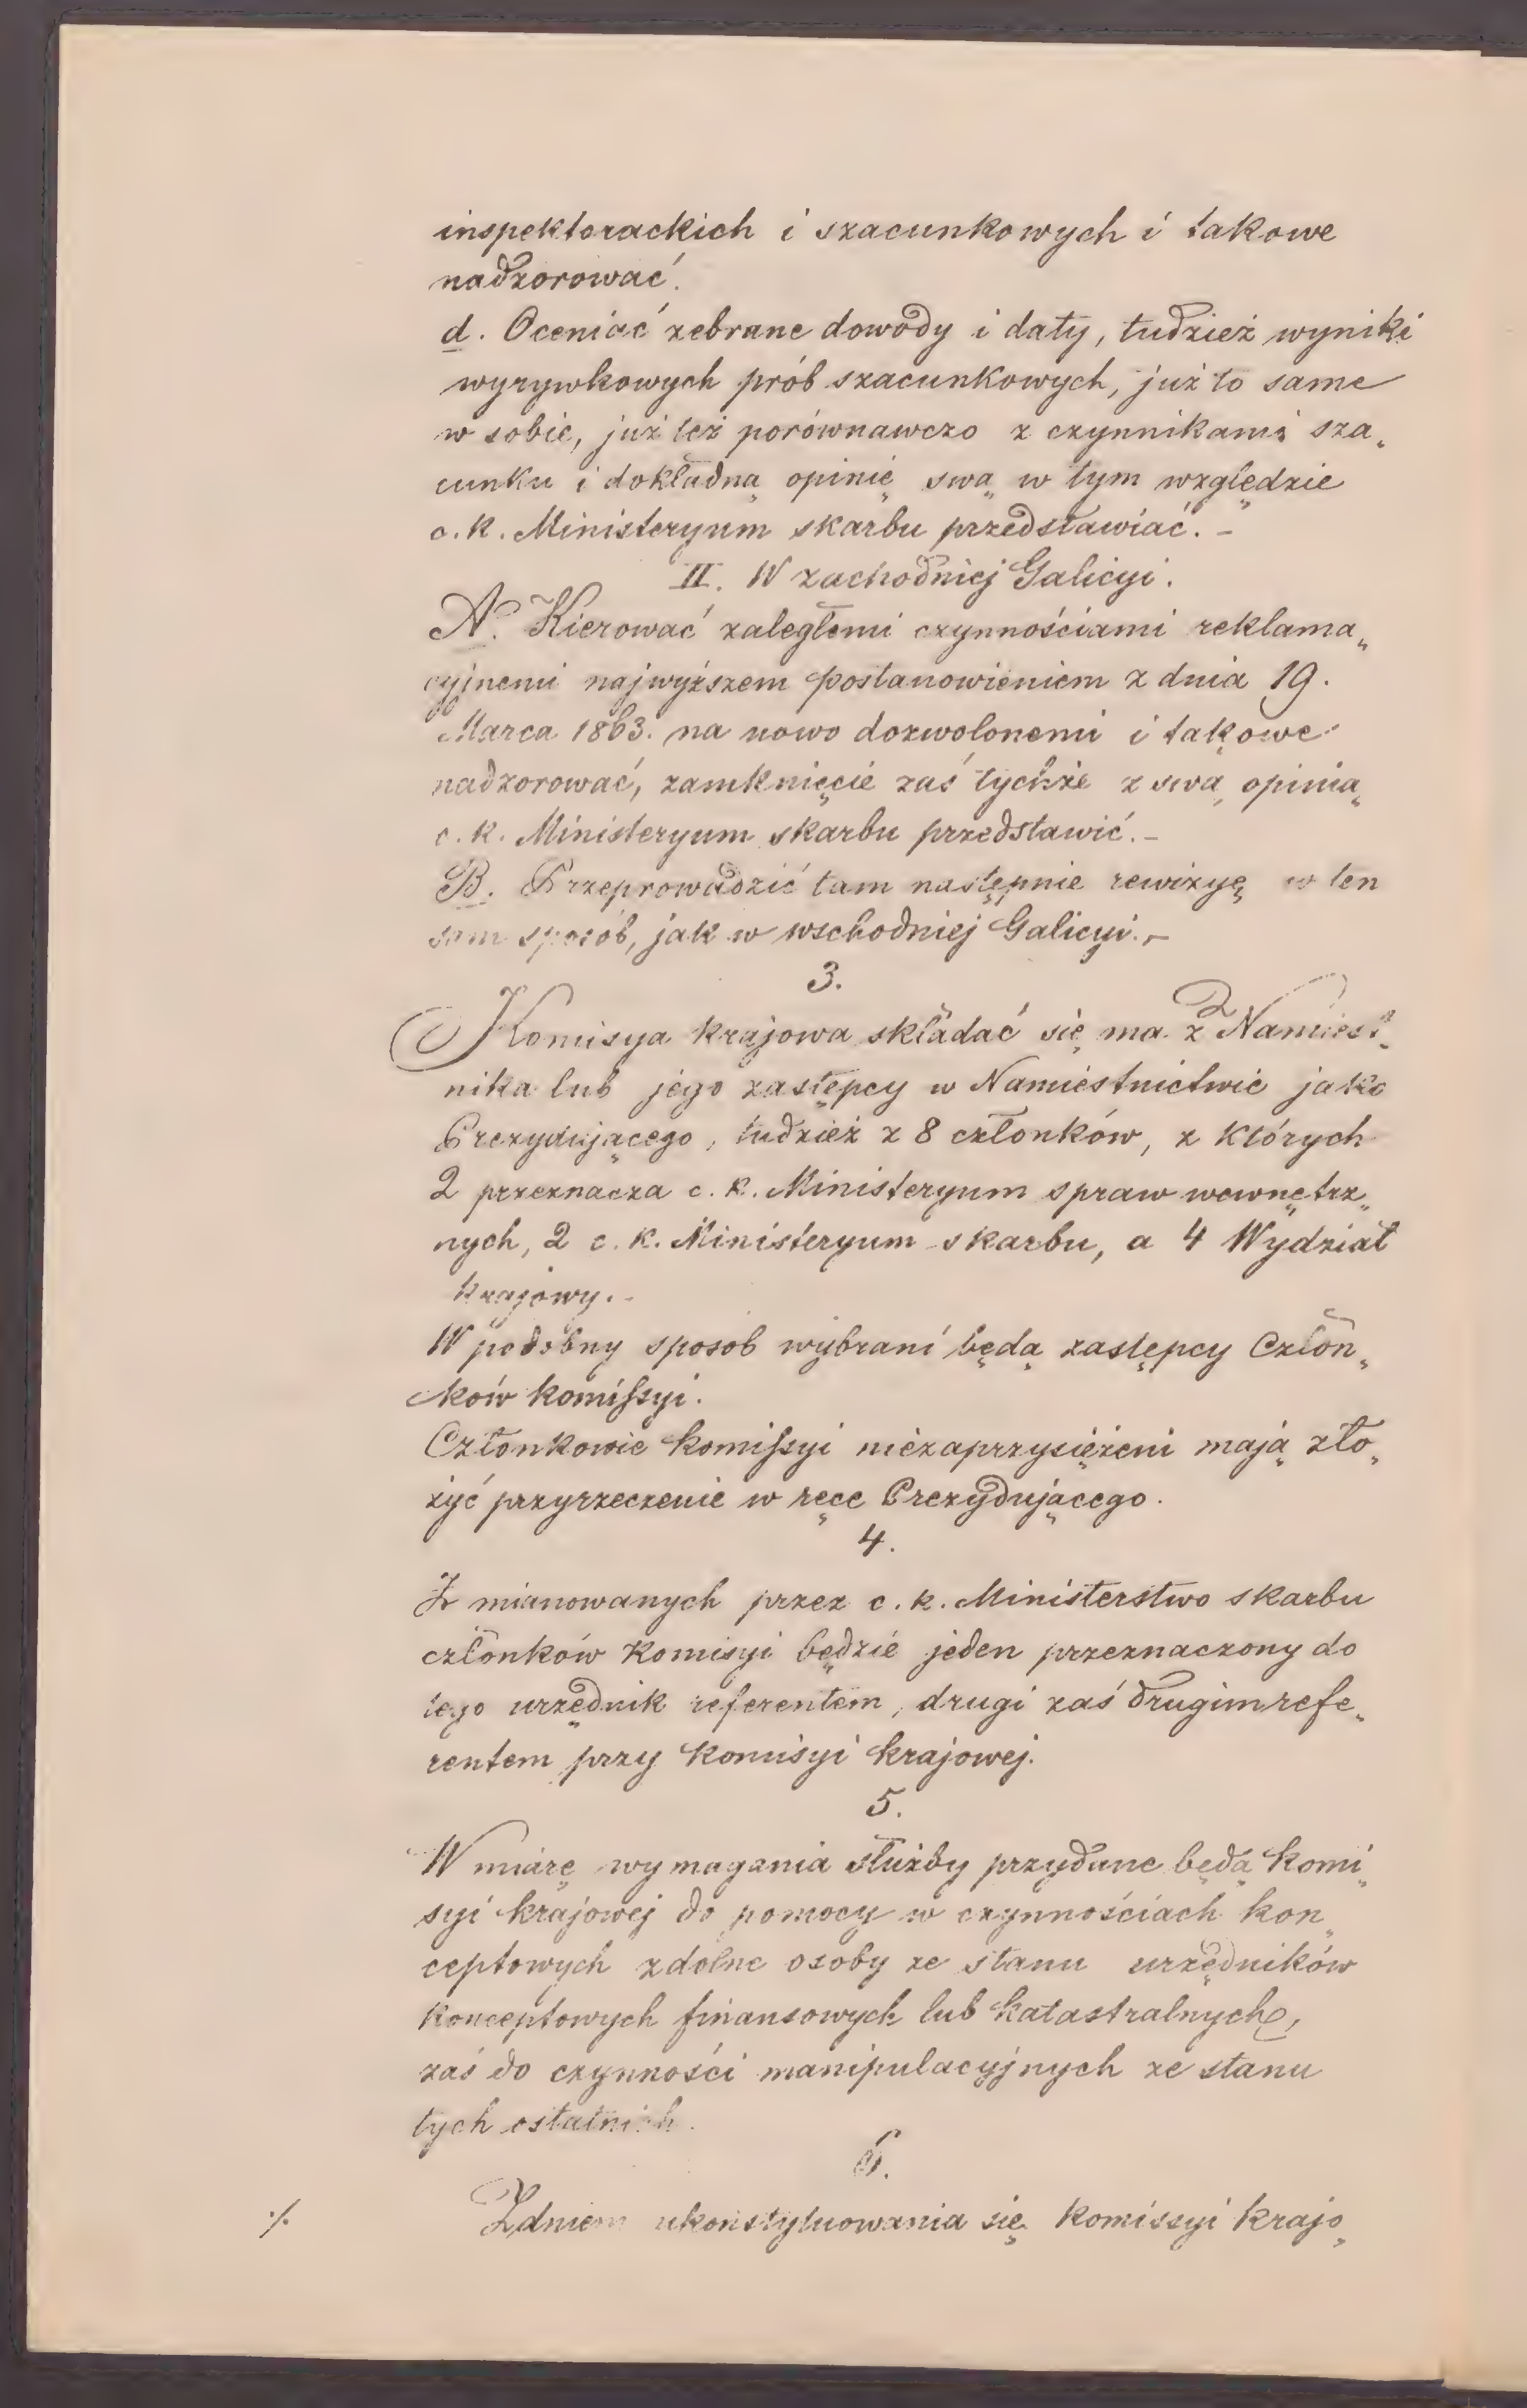 inspektorackich i szacunkowych i takowe
nadzorować.
d. Oceniać zebrane dowody i daty, tudzież wyniki
wyrywkowych prób szacunkowych, już to same
w sobie, już też porównawczo z czynnikami sza„
cunku i dokładną opinię swą w tym względzie
c. k. Ministeryum skarbu przedstawiać. –
II. W zachodniej Galicyi.
A. Kierować zaległemi czynnościami reklama„
cyjnemi najwyższem postanowieniem z dnia 19.
Marca 1863. na nowo dozwolonemi i takowe
nadzorować, zamknięcie zaś tychże z swą opinią
c. k. Ministeryum skarbu przedstawić. –
B. Przeprowadzić tam następnie rewizyę w ten
sam sposób, jak w wschodniej Galicyi. –
3.
Komisya krajowa składać się ma z Namiest„
nika lub jego zastępcy w Namiestnictwie jako
Prezydującego, tudzież z 8 członków, z których
2 przeznacza c. k. Ministeryum spraw wewnętrz„
nych, 2 c. k. Ministeryum skarbu, a 4 Wydział
krajowy. –
W podobny sposob wybrani będą zastępcy Człon„
ków komissyi.
Członkowie komissyi niezaprzysiężeni mają zło„
żyć przyrzeczenie w ręce Prezydującego.
4.
Z mianowanych przez c. k. Ministerstwo skarbu
członków Komisyi będzie jeden przeznaczony do
tego urzędnik referentem, drugi zaś drugim refe„
rentem przy Komisyi krajowej.
5.
W miarę wymagania służby przydane będą komi„
syi krajowej do pomocy w czynnościach kon„
ceptowych zdolne osoby ze stanu urzędników
konceptowych finansowych lub katastralnych,
zaś do czynności manipulacyjnych ze stanu
tych ostatnich.
6.
Z dniem ukonstytuowania się Komissyi krajo„
·/.